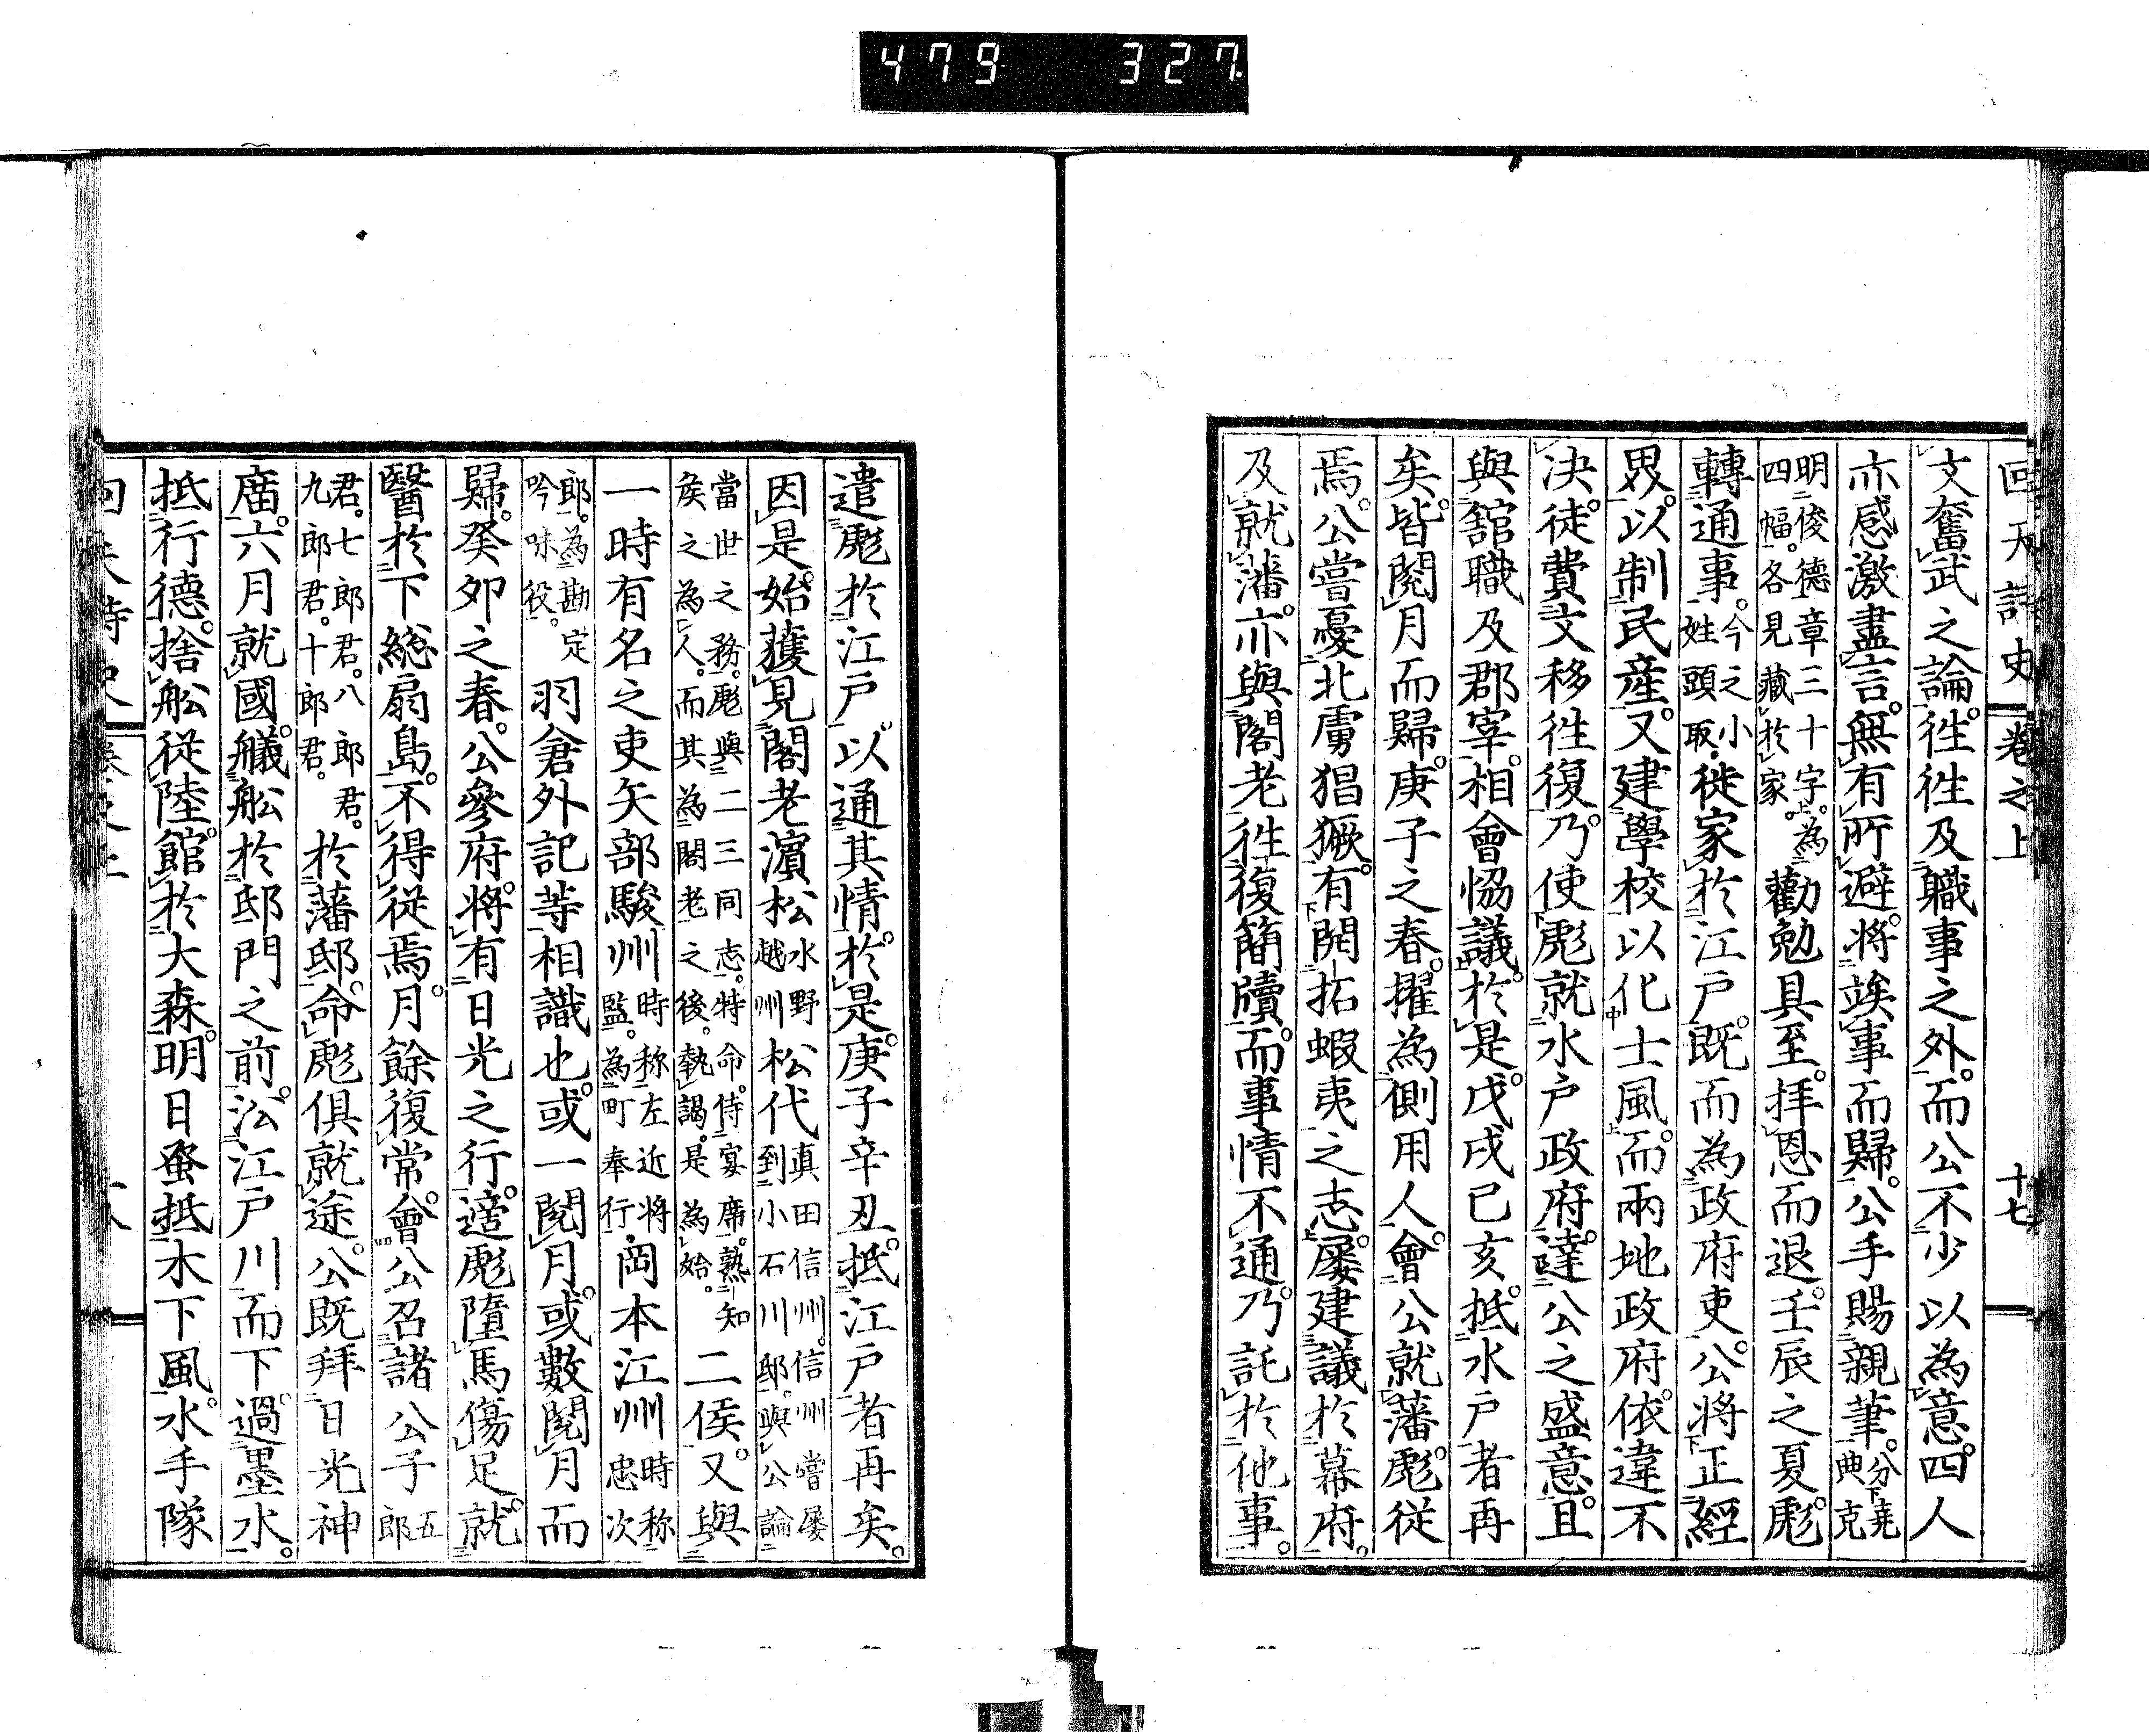 479 327
回天詩史 卷之上 十七
文奮武之論。徃徃及職事之外。而公不少以為意。四人
亦感激盡言。無有所避。將竢事而歸。公手賜親筆。分堯典克
明俊德章三十字。為四幅。各見藏於家。勸勉具至。拜恩而退。壬辰之夏。彪
轉通事。今之小姓頭取。徙家於江戶。既而為政府吏。公將正經
界。以制民產。又建學校以化士風。而兩地政府。依違不
決。徒費文移徃復。乃使彪就水戶政府。達公之盛意。且
與舘職及郡宰。相會恊議。於是。戊戌己亥。抵水戶者再
矣。皆閱月而歸。庚子之春。擢為側用人。會公就藩。彪從
焉。公嘗憂北虜猖獗。有開拓蝦夷之志。屢建議於幕府。
及就藩。亦與閣老徃復簡牘。而事情不通。乃託於他事。
遣彪於江戶。以通其情。於是。庚子辛丑。抵江戶者再矣。
因是。始獲見閣老濵松水野越州松代真田信州。信州嘗屢到小石川邸。與公論
當世之務。彪與二三同志。特命侍宴席。熟知矦之為人。而其為閣老之後。執謁。是為始。二侯。又與
一時有名之吏矢部駿州時称左近将監。為町奉行。岡本江州時称忠次
郎。為勘定吟味役。羽倉外記等。相識也。或一閱月。或數閱月而
歸。癸卯之春。公參府。將有日光之行。適彪墮馬傷足。就
醫於下総扇島。不得從焉。月餘復常。會公召諸公子五郎
君。七郎君。八郎君。九郎君。十郎君。於藩邸。命彪俱就途。公既拜日光神
廟。六月就國。艤舩於邸門之前。沿江戶川而下。過墨水。
抵行德。捨舩從陸。館於大森。明日蚤抵木下風。水手隊